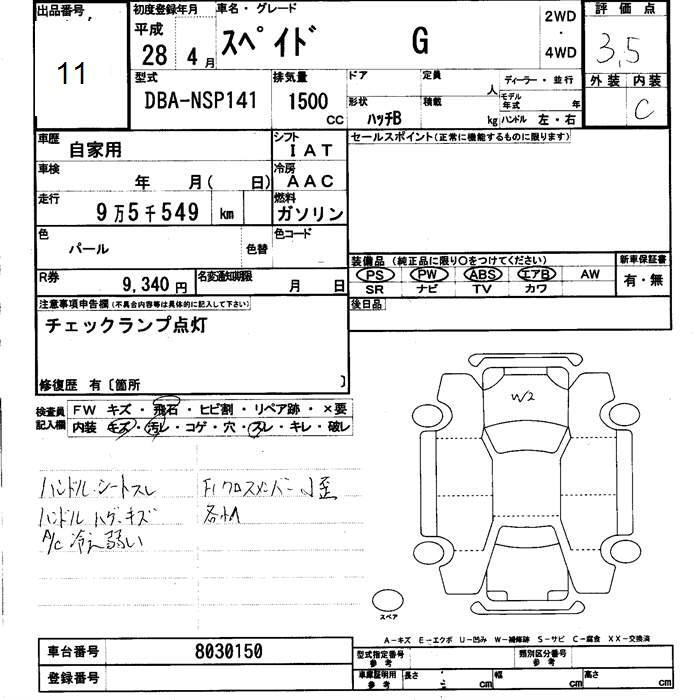 出品番号 初度登録年月 車名・グレード 2WD ・ 4WD 評価点
11 平成 28 4月 スペイド G 3,5
型式 排気量 ドア 定員 人 ディーラー・並行 外装 内装
DBA-NSP141 1500 CC 形状 ハッチB 積載 kg モデル年式 年 ハンドル 左・右 C
車歴 自家用 シフト IAT セールスポイント(正常に機能するものに限ります)
車検 年 月( 日) 冷房 AAC
走行 9万5千549 km 燃料 ガソリン
色 パール 色替 色コード
装備品(純正品に限り○をつけてください) 新車保証書
R券 9,340円 名変通知期限 月 日 PS PW ABS エアB AW 有・無
SR ナビ TV カワ
注意事項申告欄(不具合内容等は具体的に記入して下さい) 後日品
チェックランプ点灯
修復歴 有〔箇所 〕
W2
検査員記入欄 FW キズ・飛石・ヒビ割・リペア跡・×要
内装・キズ・汚レ・コゲ・穴・スレ・キレ・破レ
ハンドル・シートスレ Frクロスメンバー小歪
ハンドルハゲ・キズ 各小A
A/C冷え弱い
スペア
A-キズ E-エクボ U-凹み W-補修跡 S-サビ C-腐食 XX-交換済
車台番号 8030150 型式指定番号 参考 類別区分番号 参考
登録番号 車庫証明用 参考 長さ cm 幅 cm 高さ cm